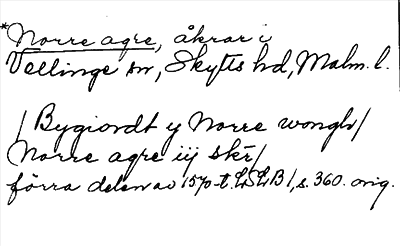 *Norre agre, åkrar i
Vellinge sn, Skytts hd, Malm. l.
/Bygiordt y Norre wongh/
Norre agre iij skr/
förra delen av 1570-t. LSLB 1, s. 360. orig.